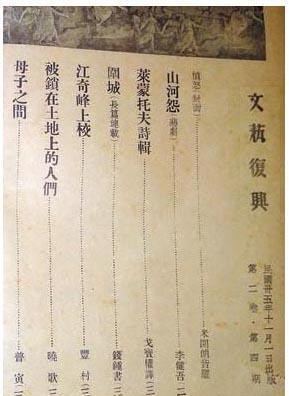 文藝復興
民國卅五年十一月一日出版
第二卷・第四期
憤怒(封面)……米開朗哲羅
山河怨(獨劇)……李健吾(二
萊蒙托夫詩輯……戈寶權譯(二
圍城(長篇連載)……錢鍾書(三
江奇峰上校……豐村(三
被鎖在土地上的人們……曉歌(三
母子之間……普寅(三